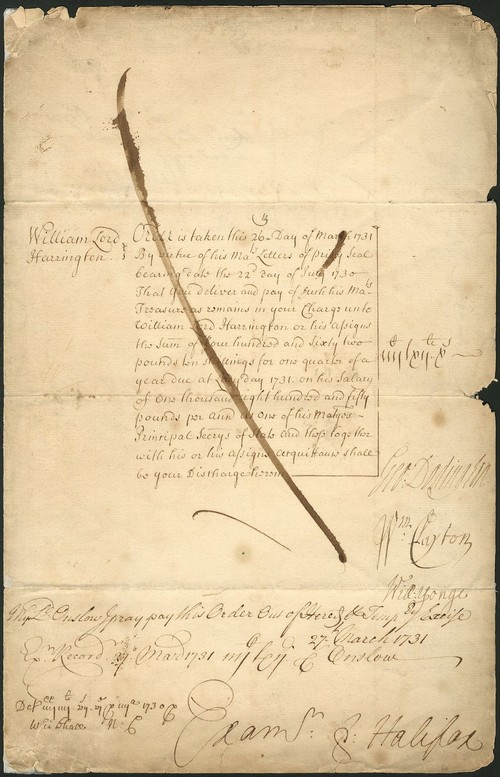 William Lord
Harrington.
Order is taken this 26 Day of March 1731
By virtue of his Mats Letters of Privy Seal
bearing date the 22d day of July 1730
That you deliver and pay of such his Mats
Treasure as remains in your Charge unto
William Lord Harrington or his assigns
the Sum of Four hundred and sixty two
pounds ten shillings for one quarter of a
year due at Lady day 1731. on his Salary
of One thousand eight hundred and fifty
pounds per Ann as One of his Matyes
Principal Secrys of State And these together
with his or his Assigns Acquittance shall
be your Discharge herein
Wm. Clayton
Will: Yonge
My Ld Onslow I pray pay this Order Out of Hered & Temp Excise
27 March 1731
Exr Record March 1731 Onslow
1730
Examr. J: Halifax